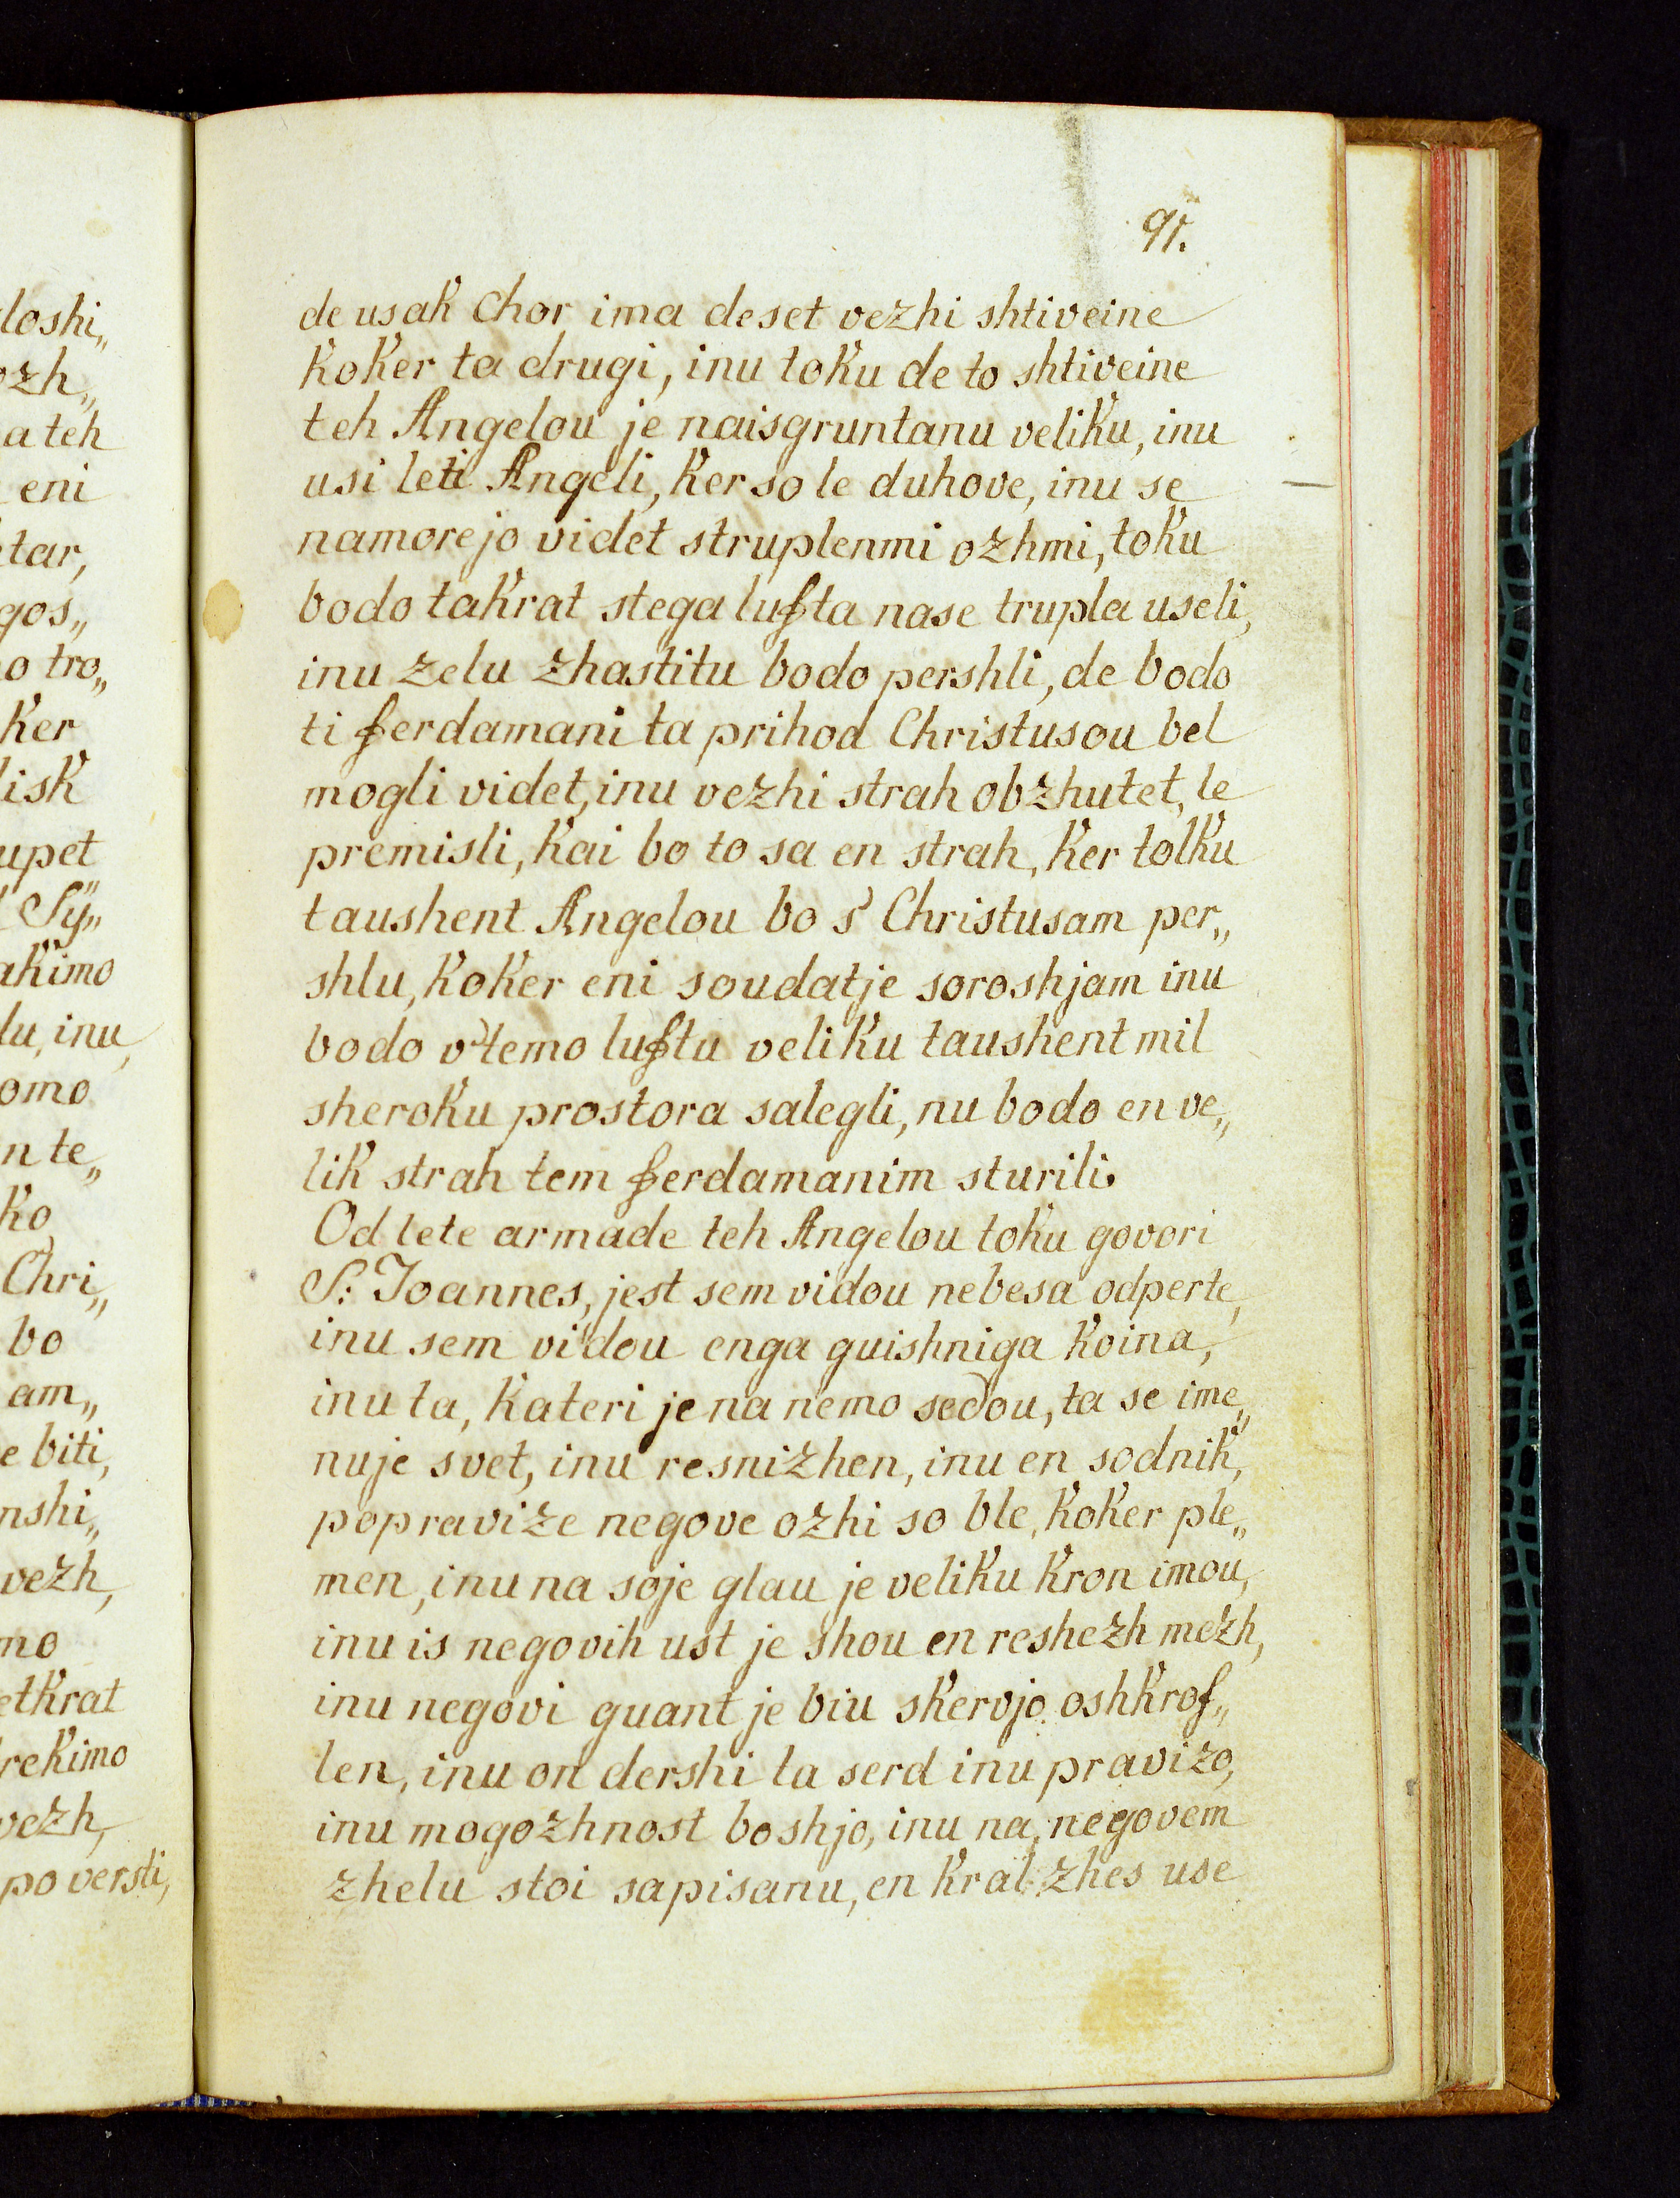 91.
de usak Chor ima deset vezhi shtiveine
koker ta drugi, inu toku de to shtiveine
teh Angelou je naisgruntanu veliku, inu
usi leti Angeli, ker so le duhove, inu se
namorejo videt struplenmi ozhmi, toku
bodo takrat stega lufta nase trupla useli,
inu zelu zhastitu bodo pershli, de bodo
ti ferdamani ta prihod Christusou bel
mogli videt, inu vezhi strah obzhutet, le
premisli, kai bo to sa en strah, ker tolku
taushent Angelou bo s' Christusam per„
shlu, koker eni soudatje soroshjam inu
bodo v'temo luftu veliku taushent mil
sheroku prostora salegli, nu bodo en ve„
lik strah tem ferdamanim sturili.
Od lete armade teh Angelou toku govori
S: Joannes, jest sem vidou nebesa odperte,
inu sem vidou enga guishniga koina,
inu ta, kateri je na nemo sedou, ta se ime„
nuje svet, inu resnizhen, inu en sodnik,
popravize negove ozhi so ble, koker ple„
men, inu na soje glau je veliku kron imou,
inu is negovih ust je shou en reshezh mezh,
inu negovi guant je biu skervjo oshkrof„
len, inu on dershi ta serd inu pravizo,
inu mogozhnost boshjo, inu na negovem
zhelu stoi sapisanu, en kral zhes use
loshi„
ozh„
a teh
eni
tar,
gos„
o tro„
ker
lisk
upet
Sÿ„
akimo
lu, inu,
omo
n te„
ko
Chri„
bo
am„
e biti,
nshi„
vezh,
mo
etkrat
rekimo
vezh,
po versti,